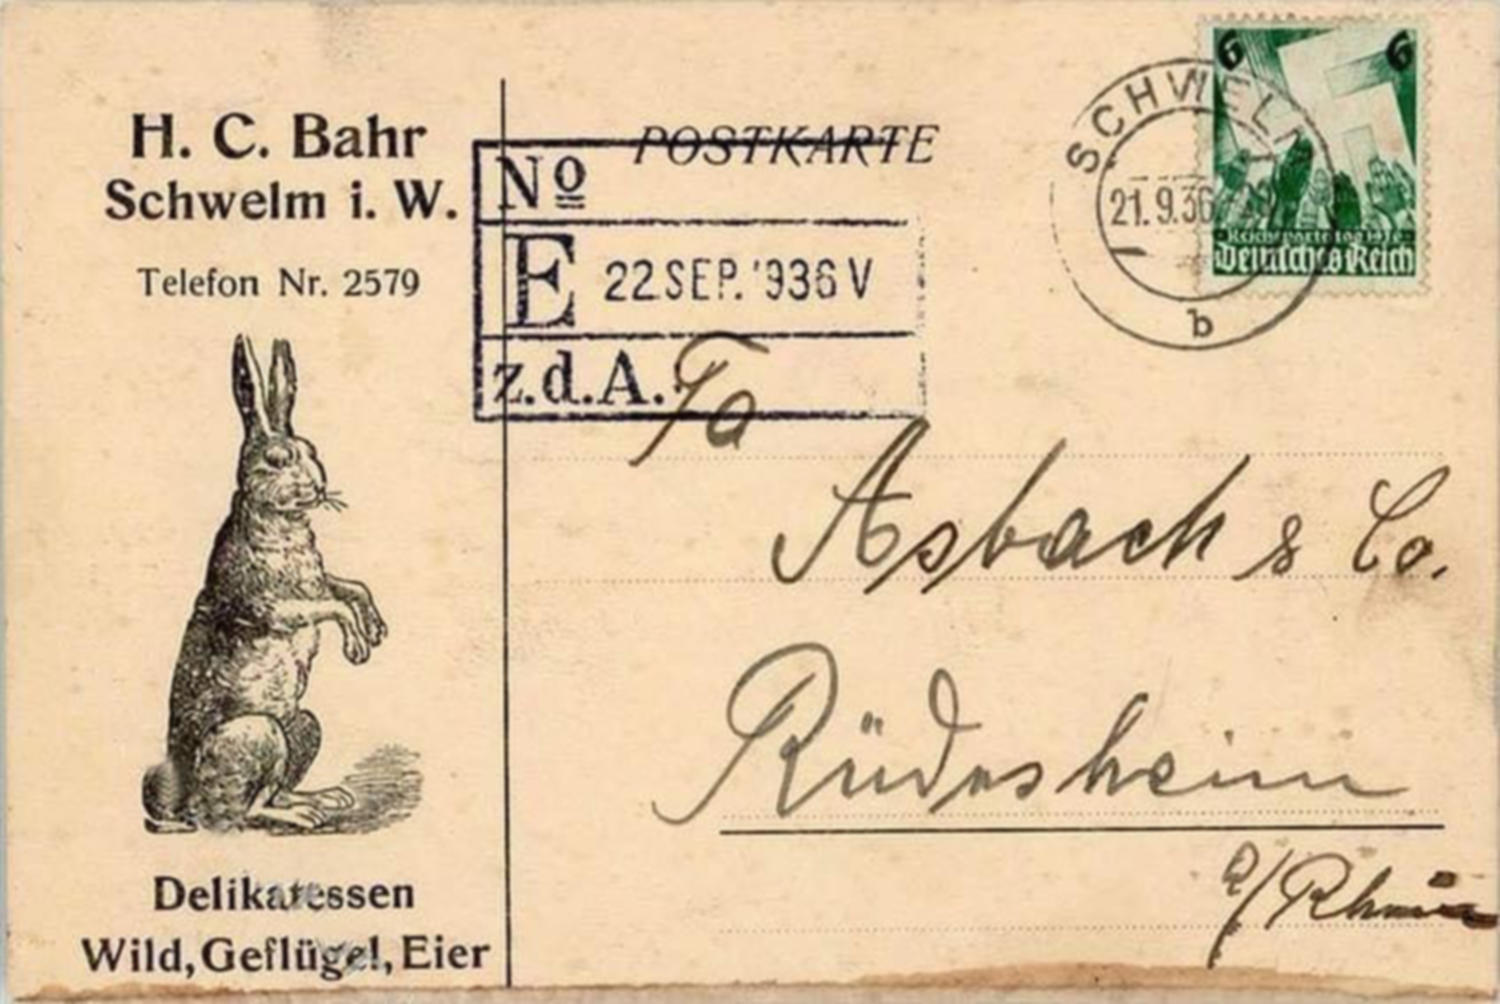 H. C. Bahr
Schwelm i. W.
Telefon Nr. 2579
Delikatessen
Wild, Geflügel, Eier
POSTKARTE
Nº
E 22.SEP.'936 V
z.d.A.
SCHWELM
21.9.36
b
6 6
Reichsparteitag 1936
Deutsches Reich
Fa
Asbach & Co.
Rüdesheim
a/Rhein